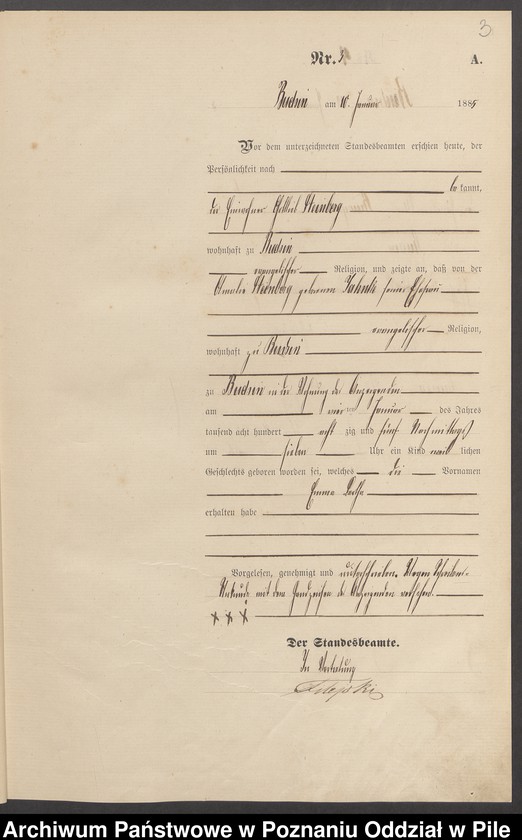 3
Nr. 3 A.
am 10. Januar 1885
Vor dem unterzeichneten Standesbeamten erschien heute, der
Persönlichkeit nach
be kannt,
der Einwohner Steinberg
wohnhaft zu
evangelischer Religion, und zeigte an, daß von der
Amalie Steinberg geborenen seiner Ehefrau
evangelischer Religion,
wohnhaft zu
zu in der Wohnung des Anzeigenden
am Januar des Jahres
tausend acht hundert acht zig und fünf Nachmittags
um sieben Uhr ein Kind weib lichen
Geschlechts geboren worden sei, welches die Vornamen
Emma
erhalten habe
Vorgelesen, genehmigt und unterschrieben. Wegen
mit dem Handzeichen des Anzeigenden versehen.
x x x
Der Standesbeamte.
In Vertretung
Archiwum Państwowe w Poznaniu Oddział w Pile